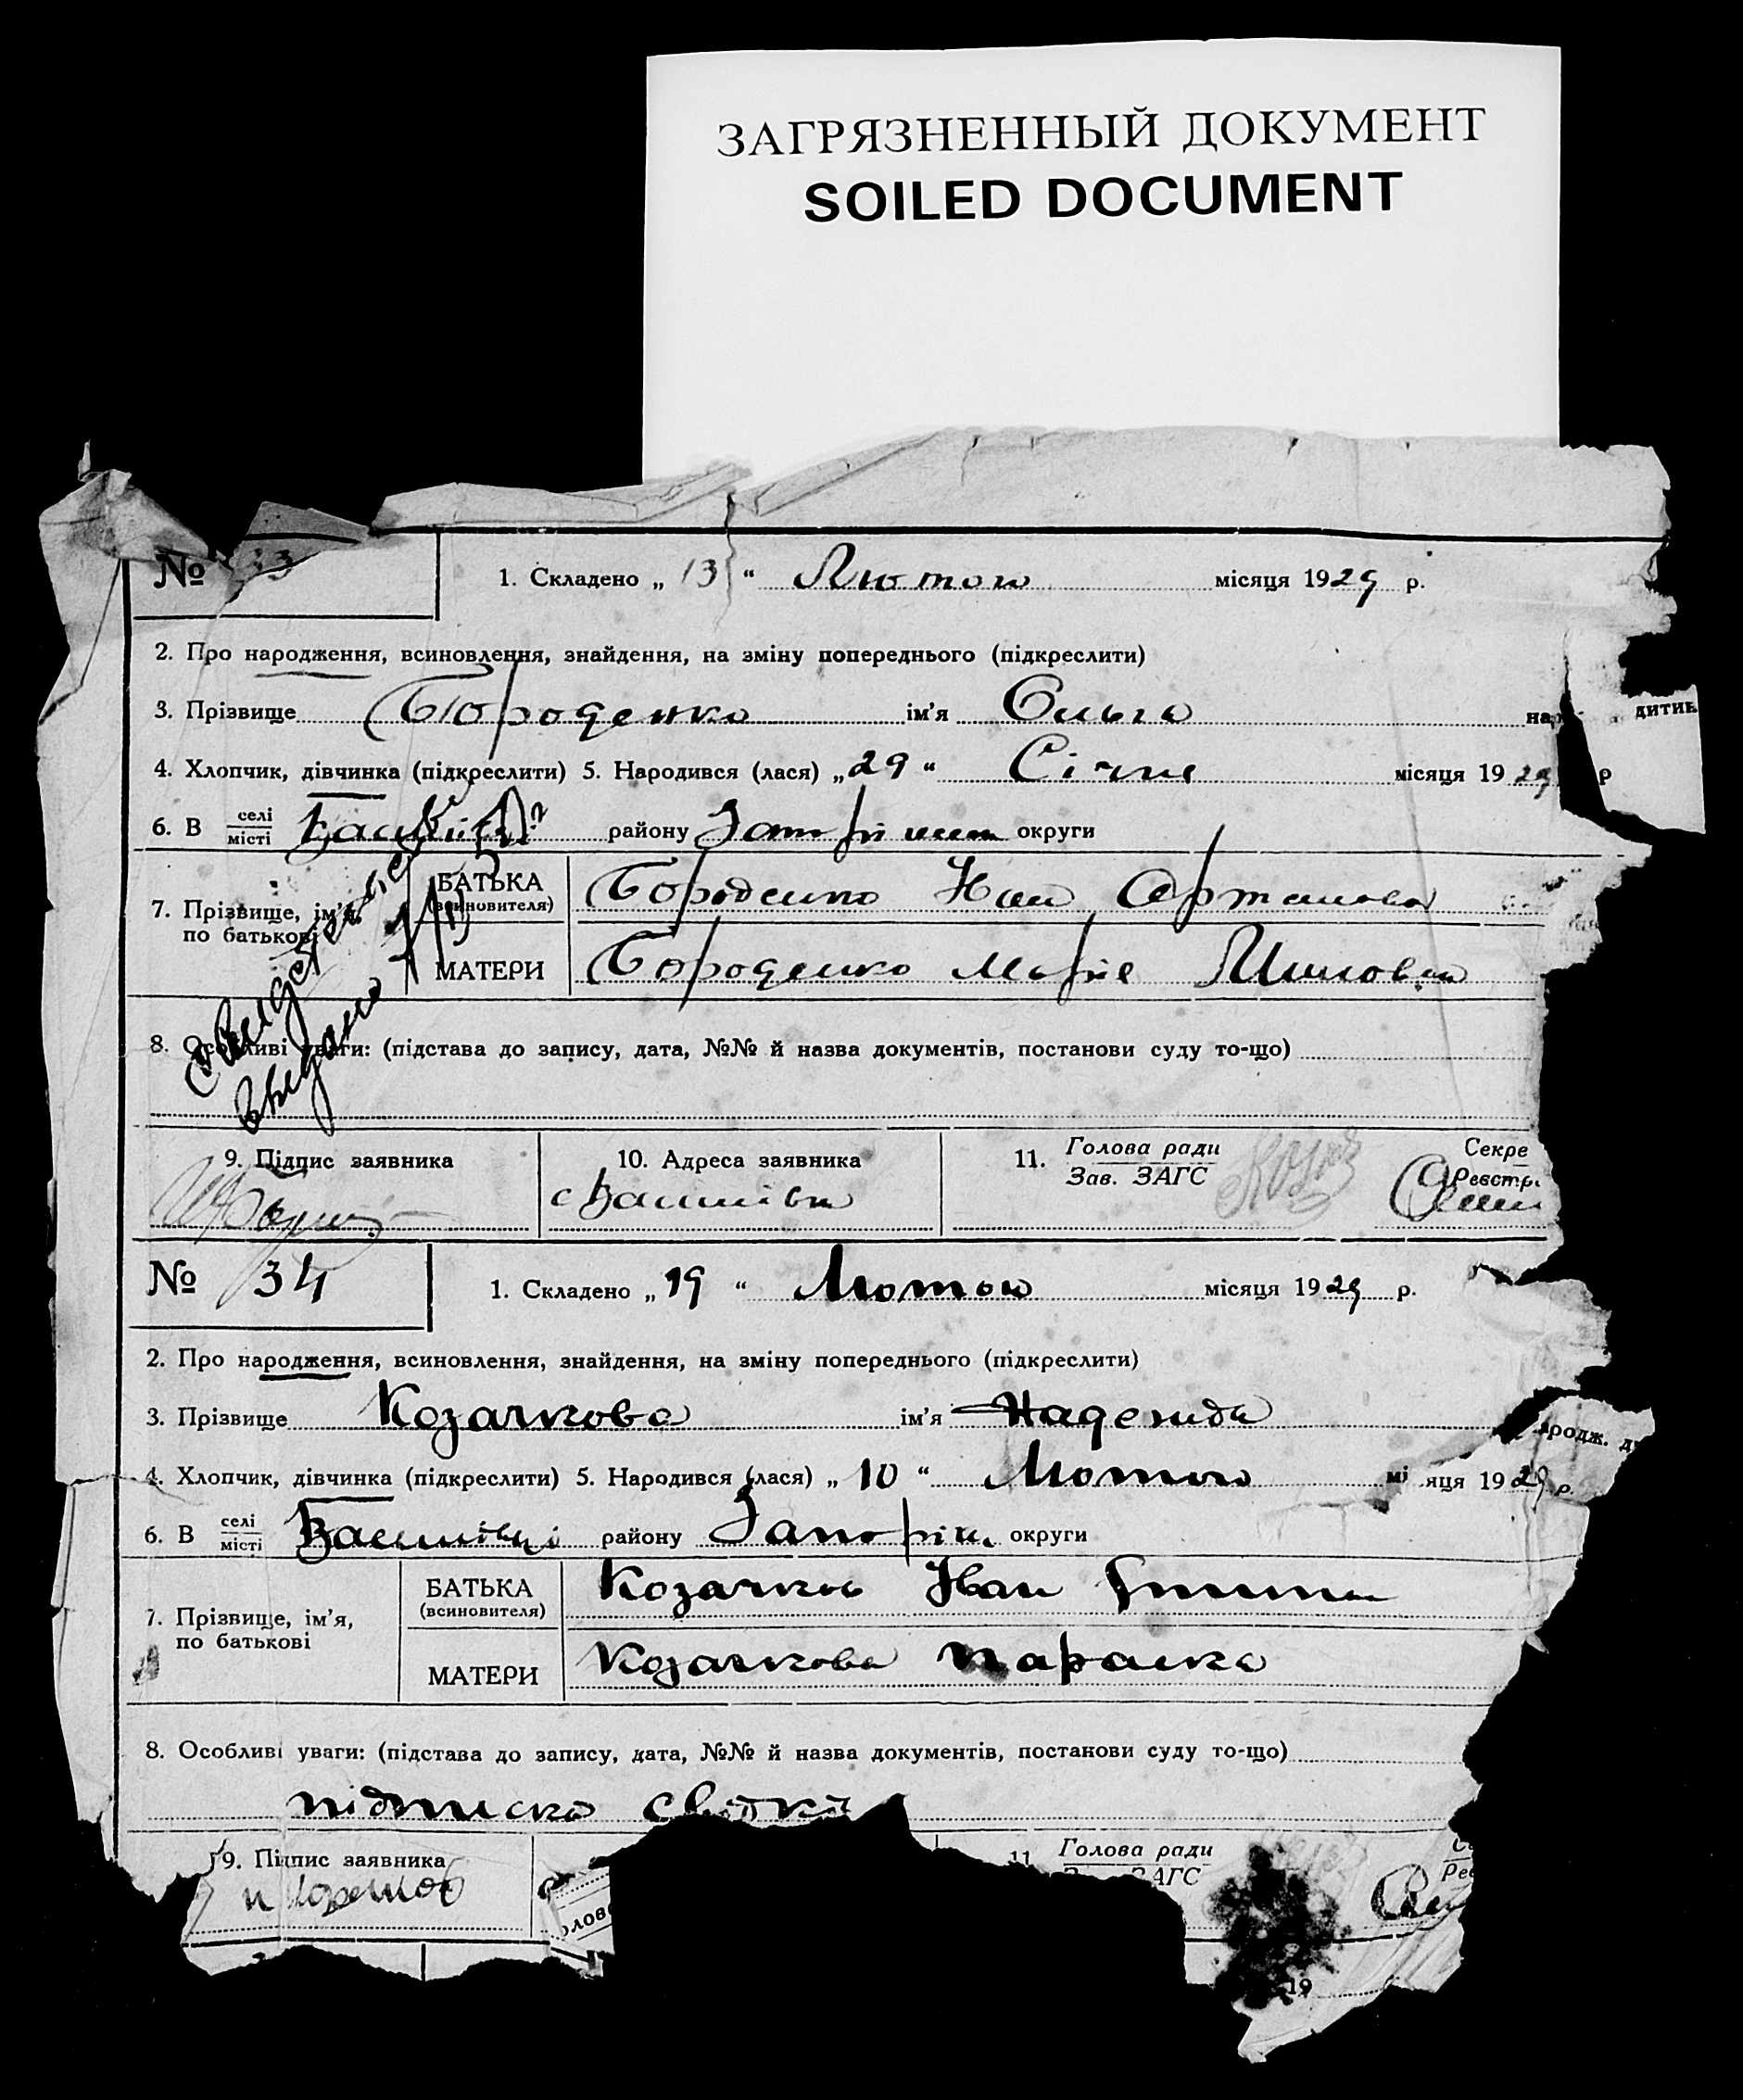 ЗАГРЯЗНЕННЫЙ ДОКУМЕНТ
SOILED DOCUMENT
№ 33
1. Складено „ 13 “ Лютого місяця 1929 р.
2. Про народження, всиновлення, знайдення, на зміну попереднього (підкреслити)
3. Прізвище Бороденко ім’я Ольга на дитин
4. Хлопчик, дівчинка (підкреслити) 5. Народився (лася) „ 29 “ Січня місяця 1929 р
6. В селі місті району округи
7. Прізвище, ім’я, по батькові
БАТЬКА (всиновителя) Бороденко Иван
МАТЕРИ Бороденко Марія
8. Особливі уваги: (підстава до запису, дата, №№ й назва документів, постанови суду то-що)
выдано
9. Підпис заявника
10. Адреса заявника
с Василівка
11. Голова ради Зав. ЗАГС
Секре Реєстр
№ 34
1. Складено „ 19 “ Лютого місяця 1929 р.
2. Про народження, всиновлення, знайдення, на зміну попереднього (підкреслити)
3. Прізвище Козачкова ім’я Надежда народж. д
4. Хлопчик, дівчинка (підкреслити) 5. Народився (лася) „ 10 “ Лютого місяця 1929 р.
6. В селі місті району Запоріж. округи
7. Прізвище, ім’я, по батькові
БАТЬКА (всиновителя) Козачков Іван
МАТЕРИ Козачкова Параска
8. Особливі уваги: (підстава до запису, дата, №№ й назва документів, постанови суду то-що)
підписка свідків
9. Підпис заявника
11 Голова ради АГС
Ре
олов
19